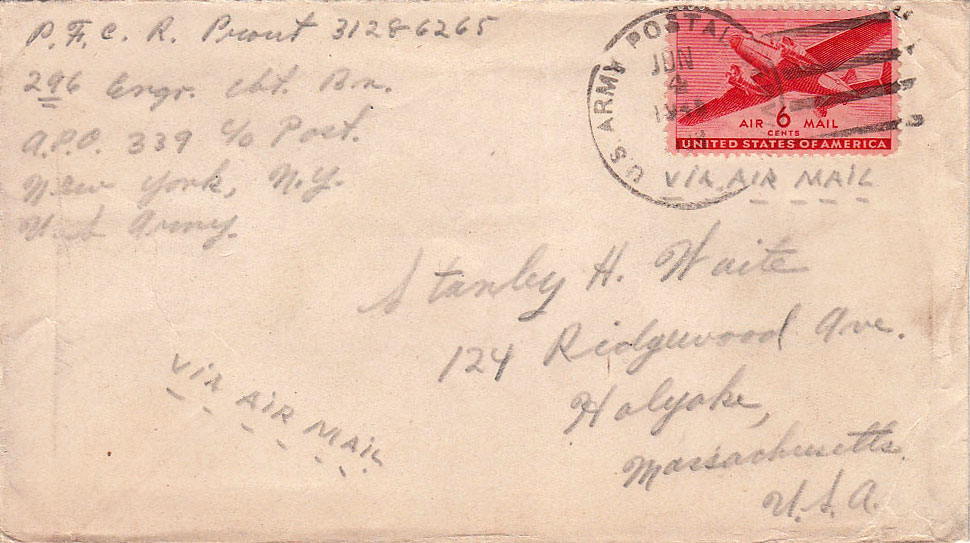 P.F.C. R. Prout 31286265
296 Engr. Cbt. Bn.
A.P.O. 339 c/o Post.
New York, N.Y.
U.S. Army.
U.S. ARMY POSTAL
JUN
4
AIR 6 MAIL
CENTS
UNITED STATES OF AMERICA
VIA AIR MAIL
Stanley H. Waite
124 Ridgewood Ave.
Holyoke,
Massachusetts
U.S.A.
VIA AIR MAIL